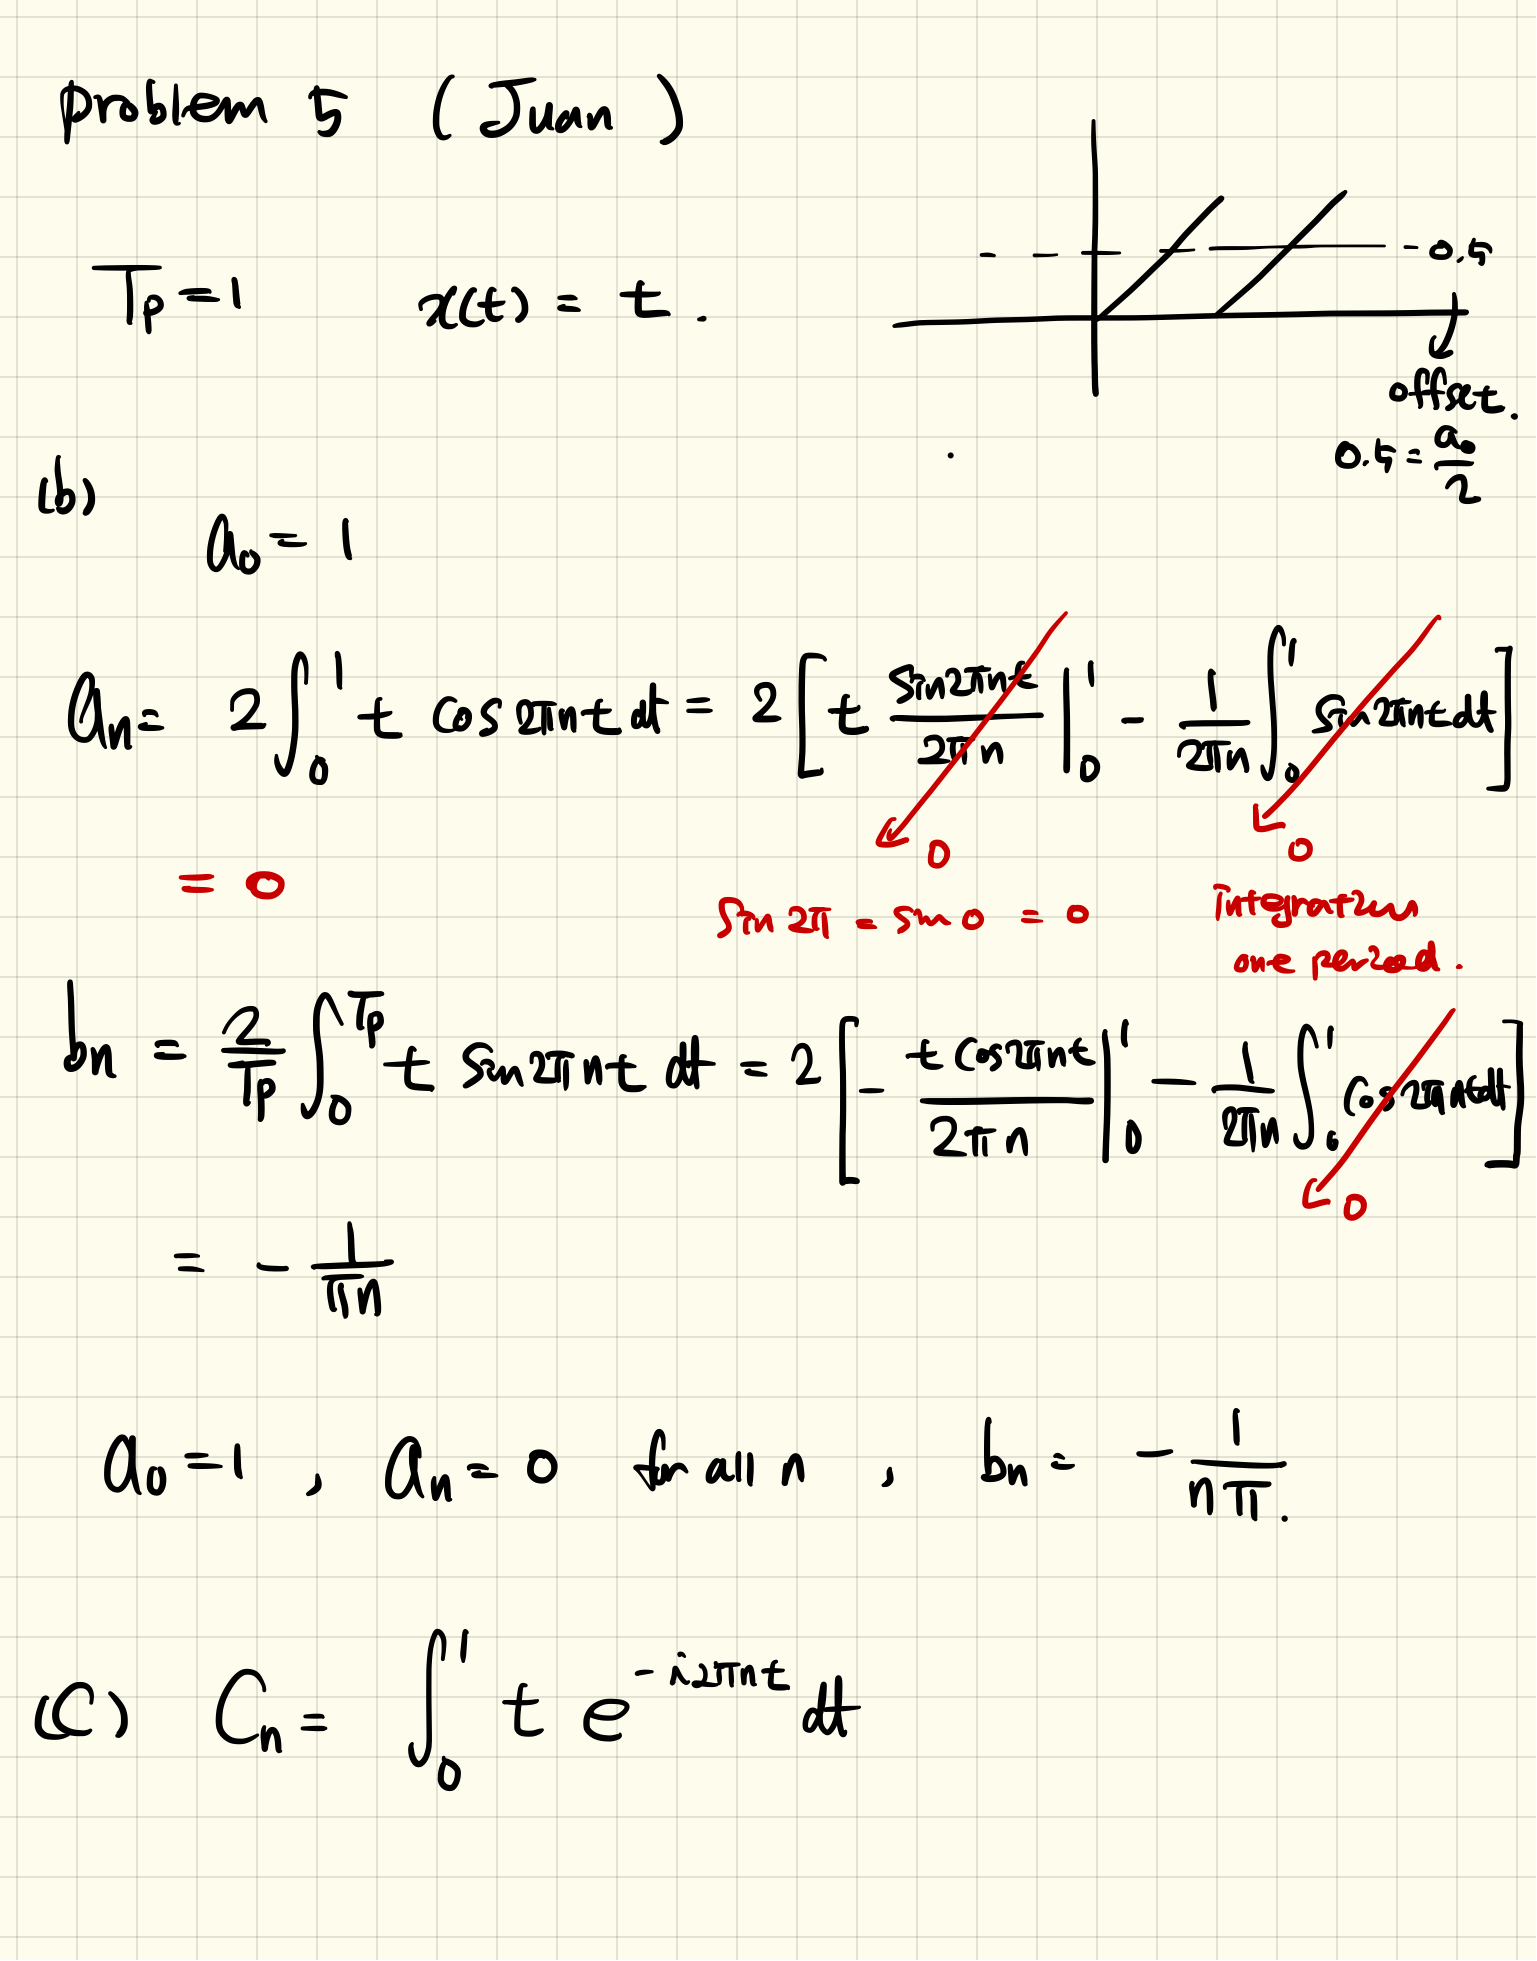 problem 5 (Juan)
T_p = 1   x(t) = t.
0.5
offset.
0.5 = a_0/2
(b)
a_0 = 1
a_n = 2 ∫_0^1 t cos 2πnt dt = 2 [ t (sin 2πnt)/(2πn) |_0^1 - 1/(2πn) ∫_0^1 sin 2πnt dt ]
0   0
= 0   sin 2π = sin 0 = 0   integration
one period.
b_n = 2/T_p ∫_0^{T_p} t sin 2πnt dt = 2 [ - (t cos 2πnt)/(2πn) |_0^1 - 1/(2πn) ∫_0^1 cos 2πnt dt ]
0
= - 1/(πn)
a_0 = 1 , a_n = 0 for all n , b_n = - 1/(nπ).
(C) C_n = ∫_0^1 t e^{-i2πnt} dt